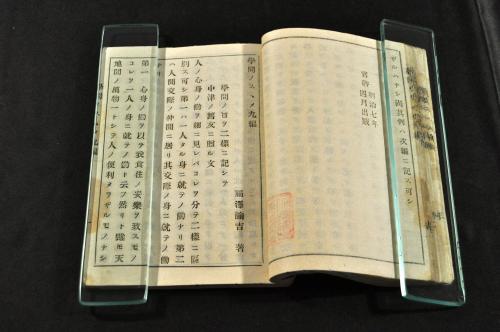 ザルハナシ尚其例ハ次編ニ記ス可シ
明治七年
官許四月出版
學問ノスヽメ九編
福澤諭吉 著
學問ノ旨ヲ二樣ニ記シテ
中津ノ舊友ニ贈ル文
人ノ心身ノ働ヲ細ニ見レバコレヲ分テ二樣ニ區
別ス可シ第一ハ一人タル身ニ就テノ働ナリ第二
ハ人間交際ノ仲間ニ居リ其交際ノ身ニ就テノ働
ナリ
第一 心身ノ働ヲ以テ衣食住ノ安樂ヲ致スモノ
コレヲ一人ノ身ニ就テノ働ト云フ然リト雖モ天
地間ノ萬物一トシテ人ノ便利タラザルモノナシ